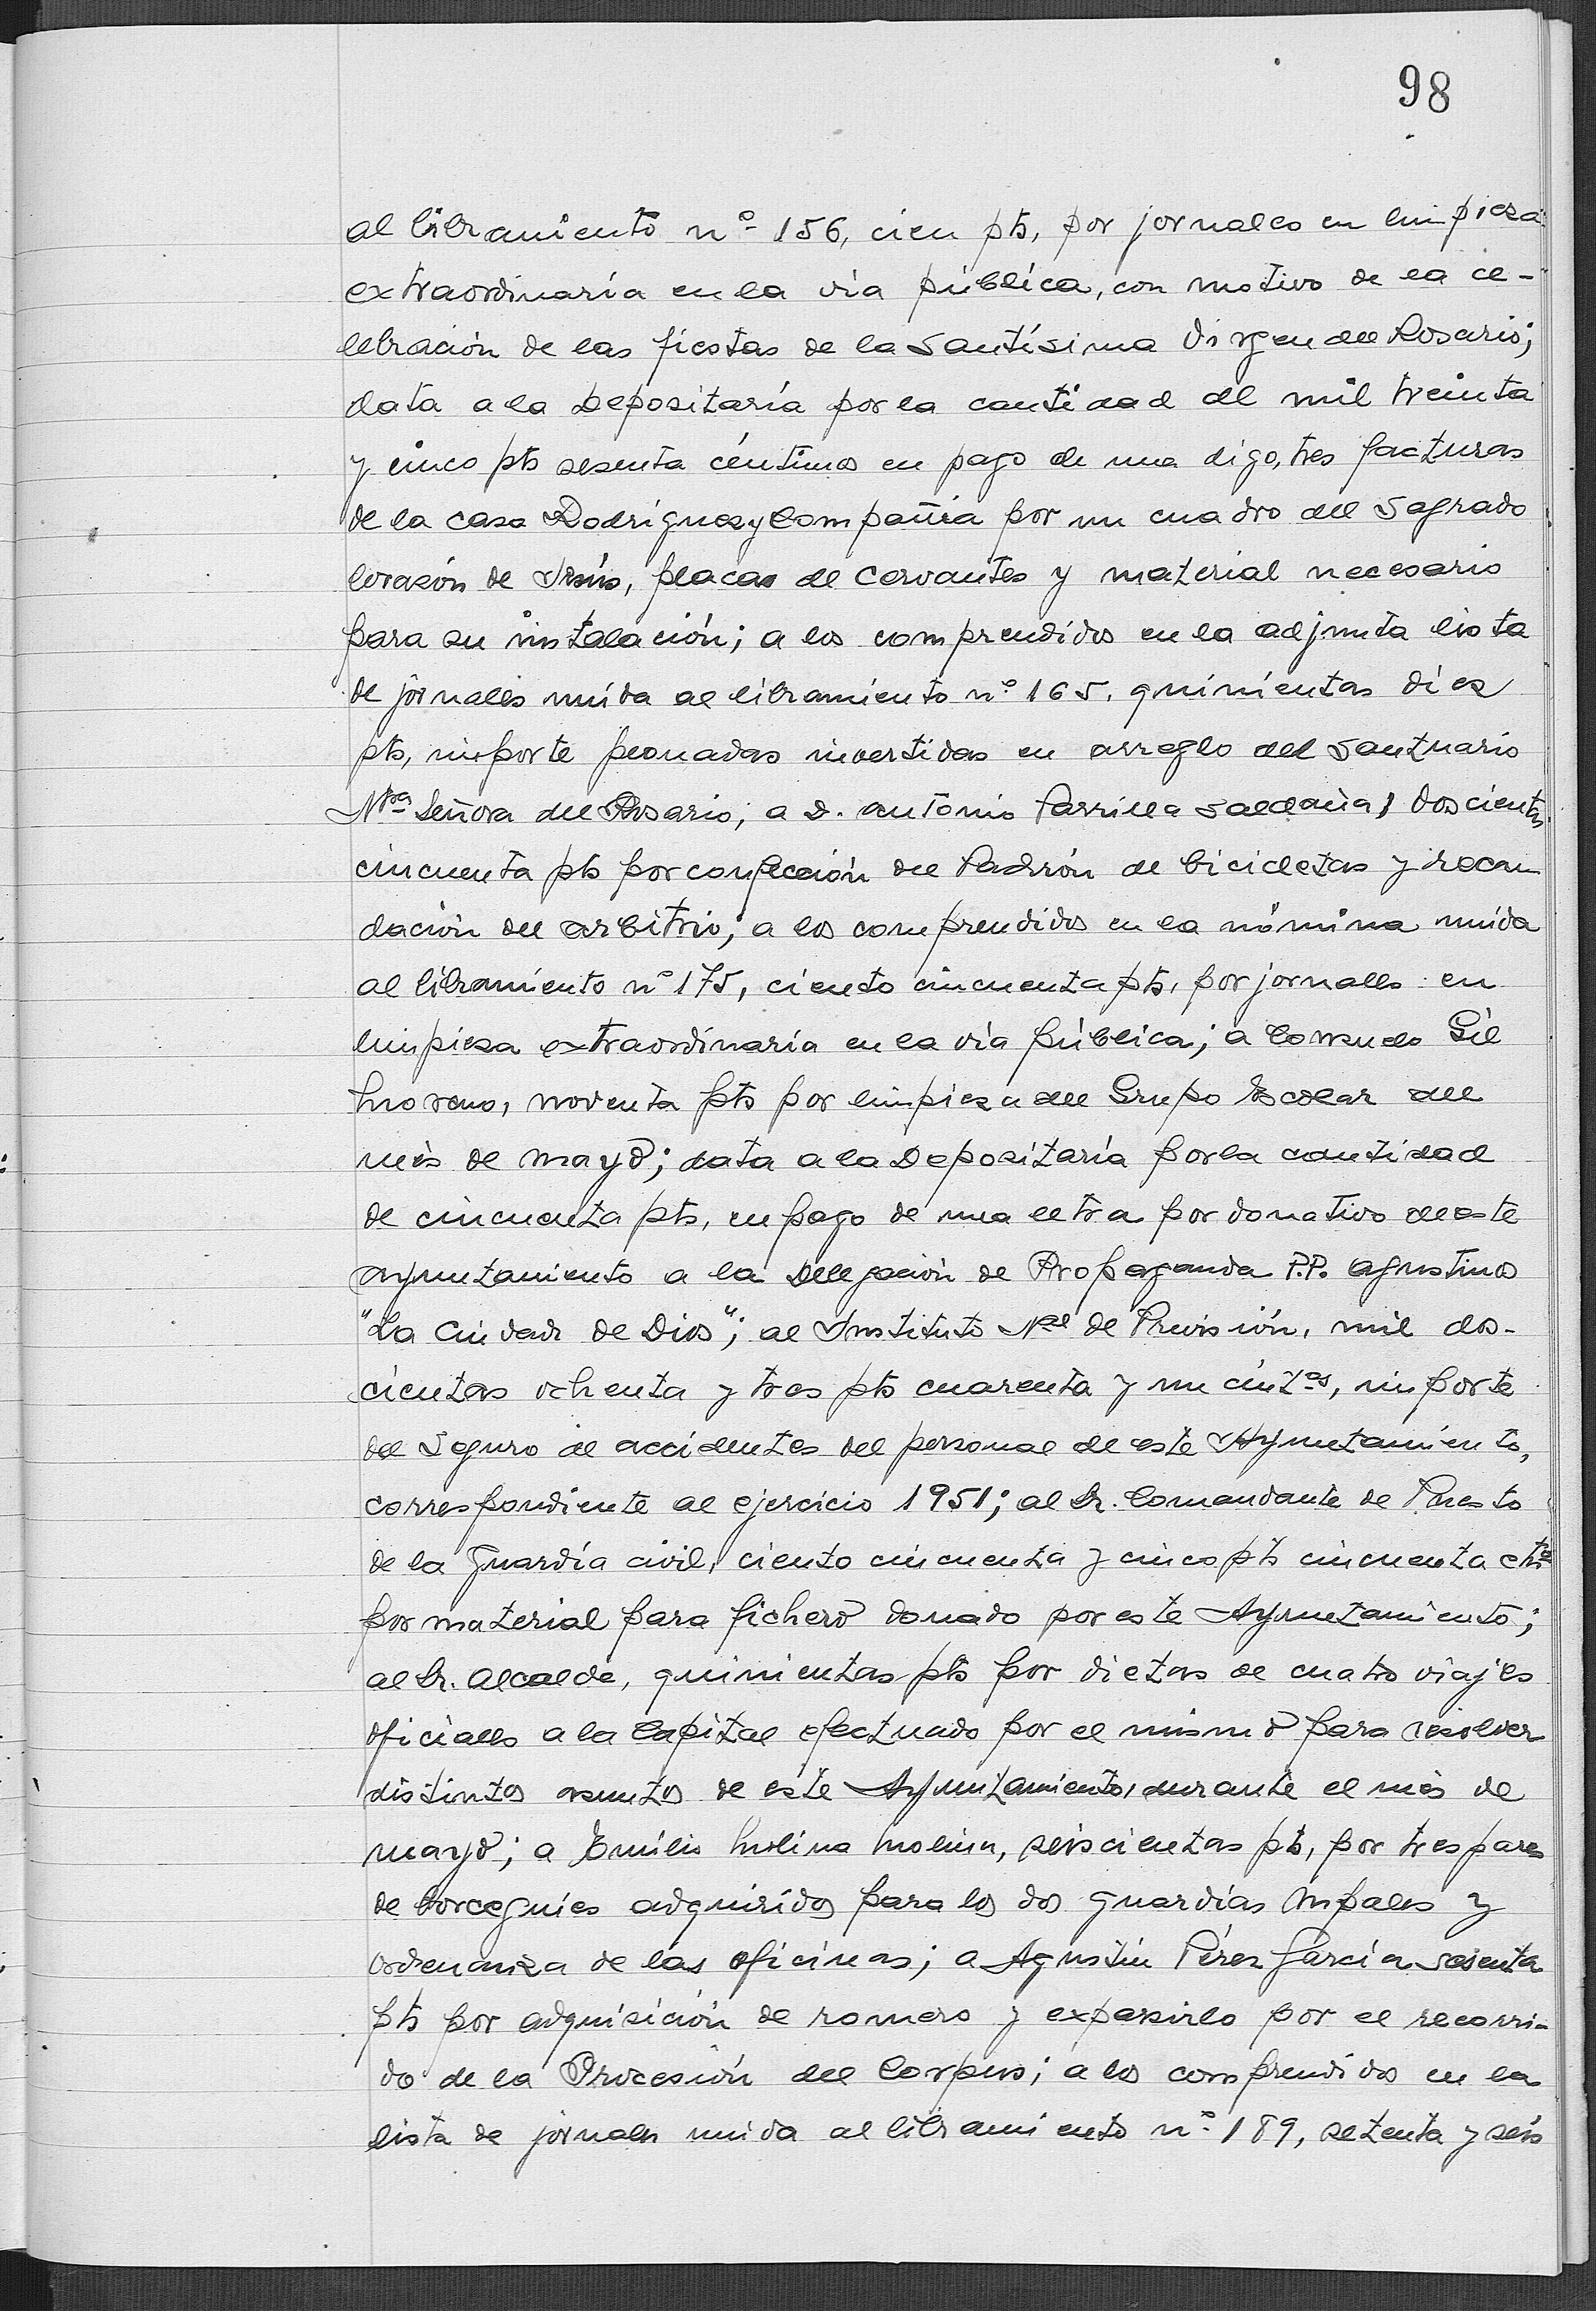 98
al libramiento nº 156, cien pts, por jornales en limpieza
extraordinaria en la via pública, con motivo de la ce-
lebración de las fiestas de la Santísima Virgen del Rosario;
data a la Depositaría por la cantidad de mil treinta
y cinco pts sesenta céntimos en pago de una digo, tres facturas
de la casa Rodriguez y Compañia por un cuadro del Sagrado
Corazón de Jesús, placas de Cervantes y material necesario
para su instalación; a los comprendidos en la adjunta lista
de jornales unida al libramiento nº 165, quinientas diez
pts, importe peonadas invertidas en arreglo del Santuario
Ntra Señora del Rosario; a D. Antonio Parrilla Saldaña, doscientas
cincuenta pts por confección del Padrón de bicicletas y recau
dación del arbitrio; a los comprendidos en la nómina unida
al libramiento nº 175, ciento cincuenta pts, por jornales en
limpieza extraordinaria en la vía pública; a Consuelo Gil
Moreno, noventa pts por limpieza del Grupo Escolar del
més de mayo; data a la Depositaría por la cantidad
de cincuenta pts, en pago de una letra por donativo de este
Ayuntamiento a la Delegación de Propaganda P.P. Agustinos
"La Ciudad de Dios"; al Instituto Nal de Previsión, mil dos-
cientas ochenta y tres pts cuarenta y un céntos, importe
del Seguro de accidentes del personal de este Ayuntamiento,
correspondiente al ejercicio 1951; al Sr. Comandante de Puesto
de la Guardía civil, ciento cincuenta y cinco pts cincuenta cts
por material para fichero donado por este Ayuntamiento;
al Sr. Alcalde, quinientas pts por dietas de cuatro viajes
oficiales a la Capital efectuado por el mismo para resolver
distintos asuntos de este Ayuntamiento, durante el més de
mayo; a Emilio Molina Molina, seiscientas pts, por tres pares
de borceguies adquiridos para los dos guardías mpales y
ordenanza de las oficinas; a Agustín Pérez García sesenta
pts por adquisición de romero y exparsirlo por el recorri-
do de la Procesión del Corpus; a los comprendidos en la
lista de jornales unida al libramiento nº 189, setenta y seis